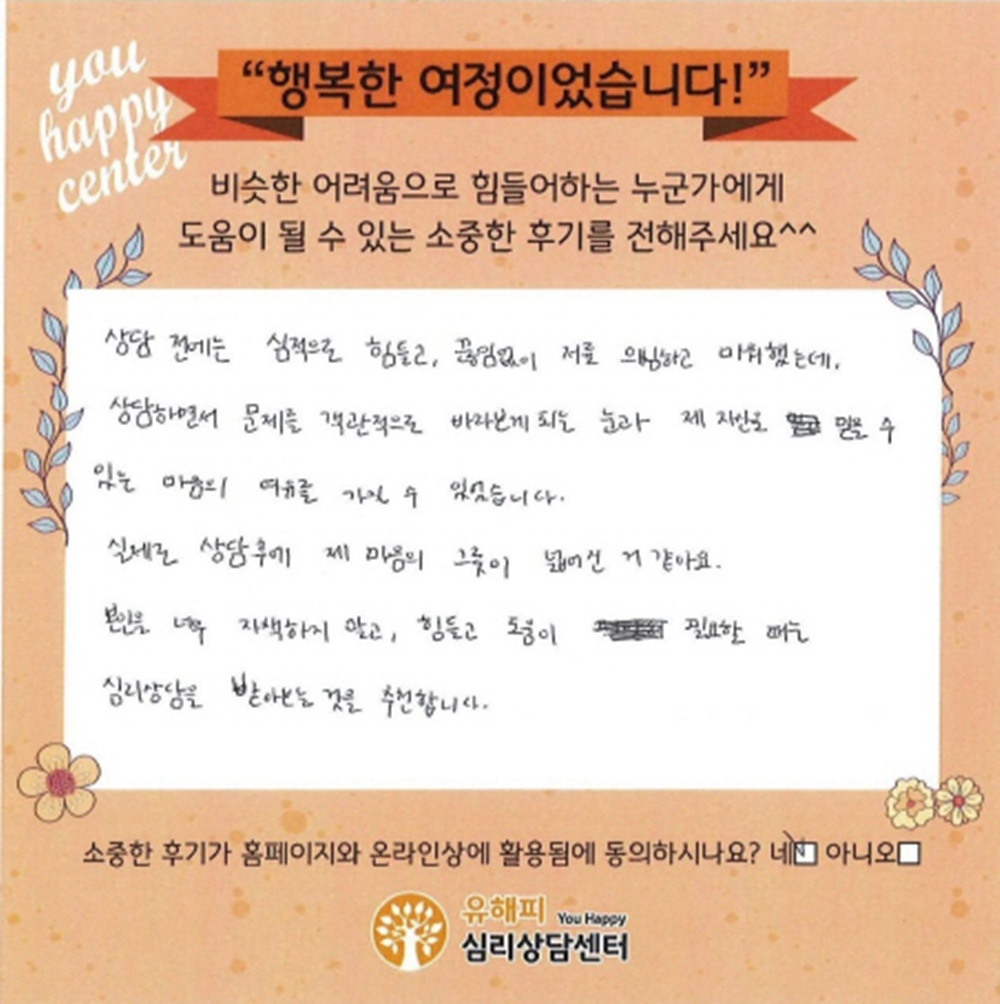 you
happy
center
“행복한 여정이었습니다!”
비슷한 어려움으로 힘들어하는 누군가에게
도움이 될 수 있는 소중한 후기를 전해주세요^^
상담 전에는 심적으로 힘들고, 끊임없이 저를 의심하고 미워했는데,
상담하면서 문제를 객관적으로 바라보게 되는 눈과 제 자신을 믿을 수
있는 마음의 여유를 가질 수 있었습니다.
실제로 상담후에 제 마음의 그릇이 넓어진 거 같아요.
본인을 너무 자책하지 말고, 힘들고 도움이 필요할 때는
심리상담을 받아보는 것을 추천합니다.
소중한 후기가 홈페이지와 온라인상에 활용됨에 동의하시나요? 네 아니오
유해피 You Happy
심리상담센터